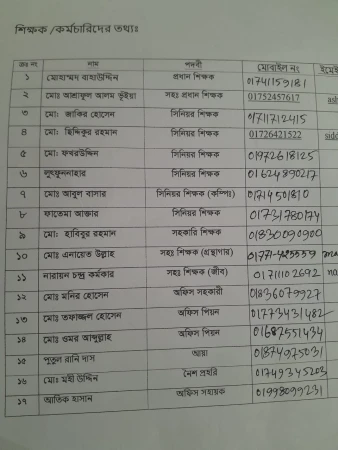 শিক্ষক /কর্মচারিদের তথ্যঃ
ক্রঃ নং নাম পদবী মোবাইল নং
১ মোহাম্মদ বাহাউদ্দিন প্রধান শিক্ষক 01741159181
২ মোঃ আশ্রাফুল আলম ভূঁইয়া সহঃ প্রধান শিক্ষক 01752457617
৩ মো: জাকির হোসেন সিনিয়র শিক্ষক 01711712415
৪ মো: ছিদ্দিকুর রহমান সিনিয়র শিক্ষক 01726421522
৫ মো: ফখরউদ্দিন সিনিয়র শিক্ষক 01972618125
৬ লুৎফুননাহার সিনিয়র শিক্ষক 01624890217
৭ মোঃ আবুল বাসার সিনিয়র শিক্ষক (কম্পিঃ) 01714501810
৮ ফাতেমা আক্তার সিনিয়র শিক্ষক 01731780174
৯ মো: হাবিবুর রহমান সহকারি শিক্ষক 01830090900
১০ মো: এনায়েত উল্লাহ সহঃ শিক্ষক (গ্রন্থাগার)
১১ নারায়ন চন্দ্র কর্মকার সহঃ শিক্ষক (জীব) 01711102692
১২ মোঃ মনির হোসেন অফিস সহকারী 01836079927
১৩ মোঃ তফাজ্জল হোসেন অফিস পিয়ন 01773431482
১৪ মোঃ ওমর আব্দুল্লাহ অফিস পিয়ন 01687551434
১৫ পুতুল রানি দাস আয়া 01874975031
১৬ মোঃ মহী উদ্দিন নৈশ প্রহরি 01749345203
১৭ আতিক হাসান অফিস সহায়ক 01998099231